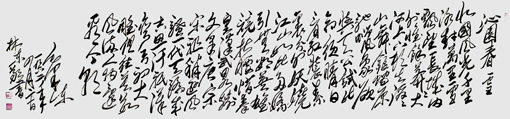 沁园春 雪
北国风光千里
冰封万里雪
飘望长城内
外惟余莽莽大
河上下顿失滔
滔山舞银蛇原
驰蜡象欲
与天公试比
高须晴日
看红装素裹
分外妖娆
江山如此多娇
引无数英雄
竞折腰惜秦
皇汉武略输
文采唐宗
宋祖稍逊风
骚一代天骄成
吉思汗只识弯
弓射大雕
俱往矣数
风流人物还
看今朝
毛泽东